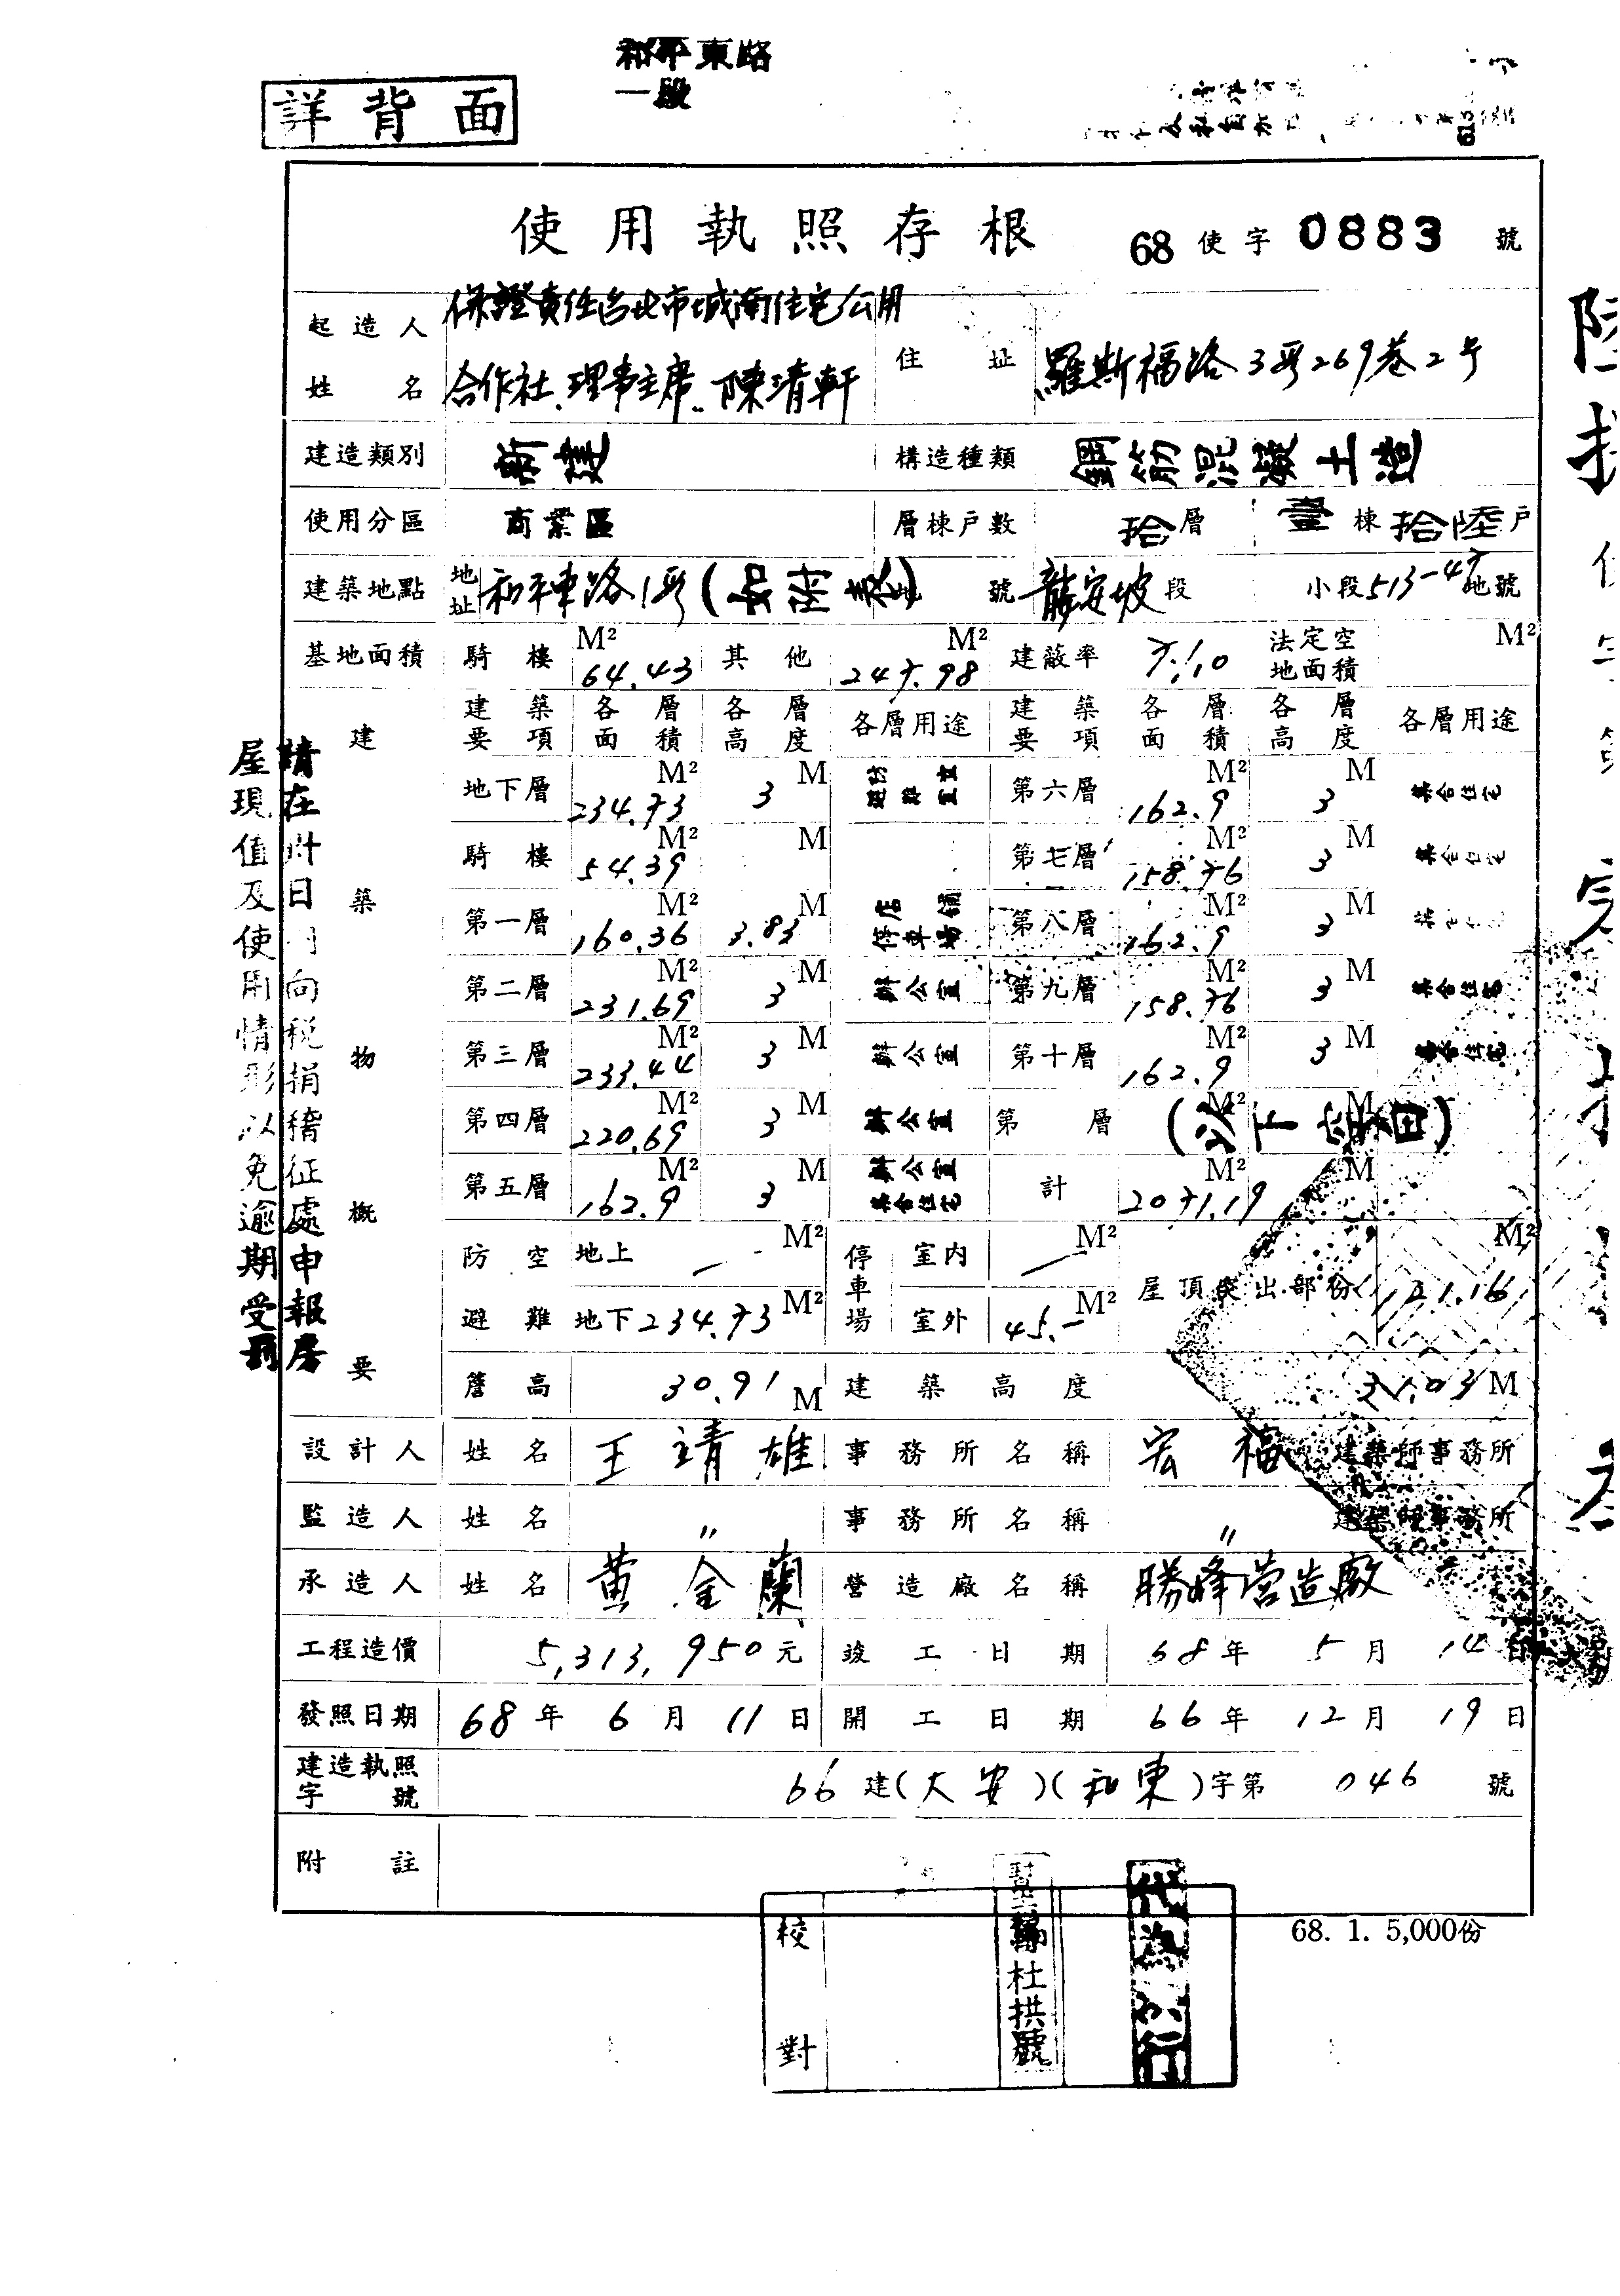 和平東路
一段
詳背面
使用執照存根 68 使字 0883 號
起造人姓名 保證責任台北市城南住宅公用合作社 理事主席 陳清軒 住址 羅斯福路3段269巷2号
建造類別 新建 構造種類 鋼筋混凝土造
使用分區 商業區 層棟戶數 拾層 壹棟 拾陸戶
建築地點 地址 和平東路1段 地號 龍安坡段 小段513-47地號
基地面積 騎樓 64.43 M² 其他 247.98 M² 建蔽率 法定空地面積 M²
建築物概要
建築要項 各層面積 各層高度 各層用途 建築要項 各層面積 各層高度 各層用途
地下層 234.73 M² 3 M 防空避難室 第六層 162.9 M² 3 M 集合住宅
騎樓 54.39 M² M 第七層 158.76 M² 3 M 集合住宅
第一層 160.36 M² 3.83 M 店舖 停車場 第八層 162.9 M² 3 M
第二層 231.69 M² 3 M 辦公室 第九層 158.76 M² 3 M 集合住宅
第三層 233.44 M² 3 M 辦公室 第十層 162.9 M² 3 M 集合住宅
第四層 220.69 M² 3 M 辦公室 第 層 (以下空白) M² M
第五層 162.9 M² 3 M 辦公室 集合住宅 計 2071.19 M² M
防空避難 地上 — M² 停車場 室內 — M² 屋頂突出部份 121.16 M²
地下 234.73 M² 室外 45.— M²
簷高 30.91 M 建築高度 31.03 M
設計人 姓名 王靖雄 事務所名稱 宏福 建築師事務所
監造人 姓名 〃 事務所名稱 〃 建築師事務所
承造人 姓名 黃金蘭 營造廠名稱 勝峰營造廠
工程造價 5,313,950元 竣工日期 68年5月14日
發照日期 68年6月11日 開工日期 66年12月19日
建造執照字號 66建(大安)(和東)字第 046 號
附註
請在 日內向稅捐稽征處申報房
屋現值及使用情形以免逾期受罰
68. 1. 5,000份
校對
杜拱
代為決行